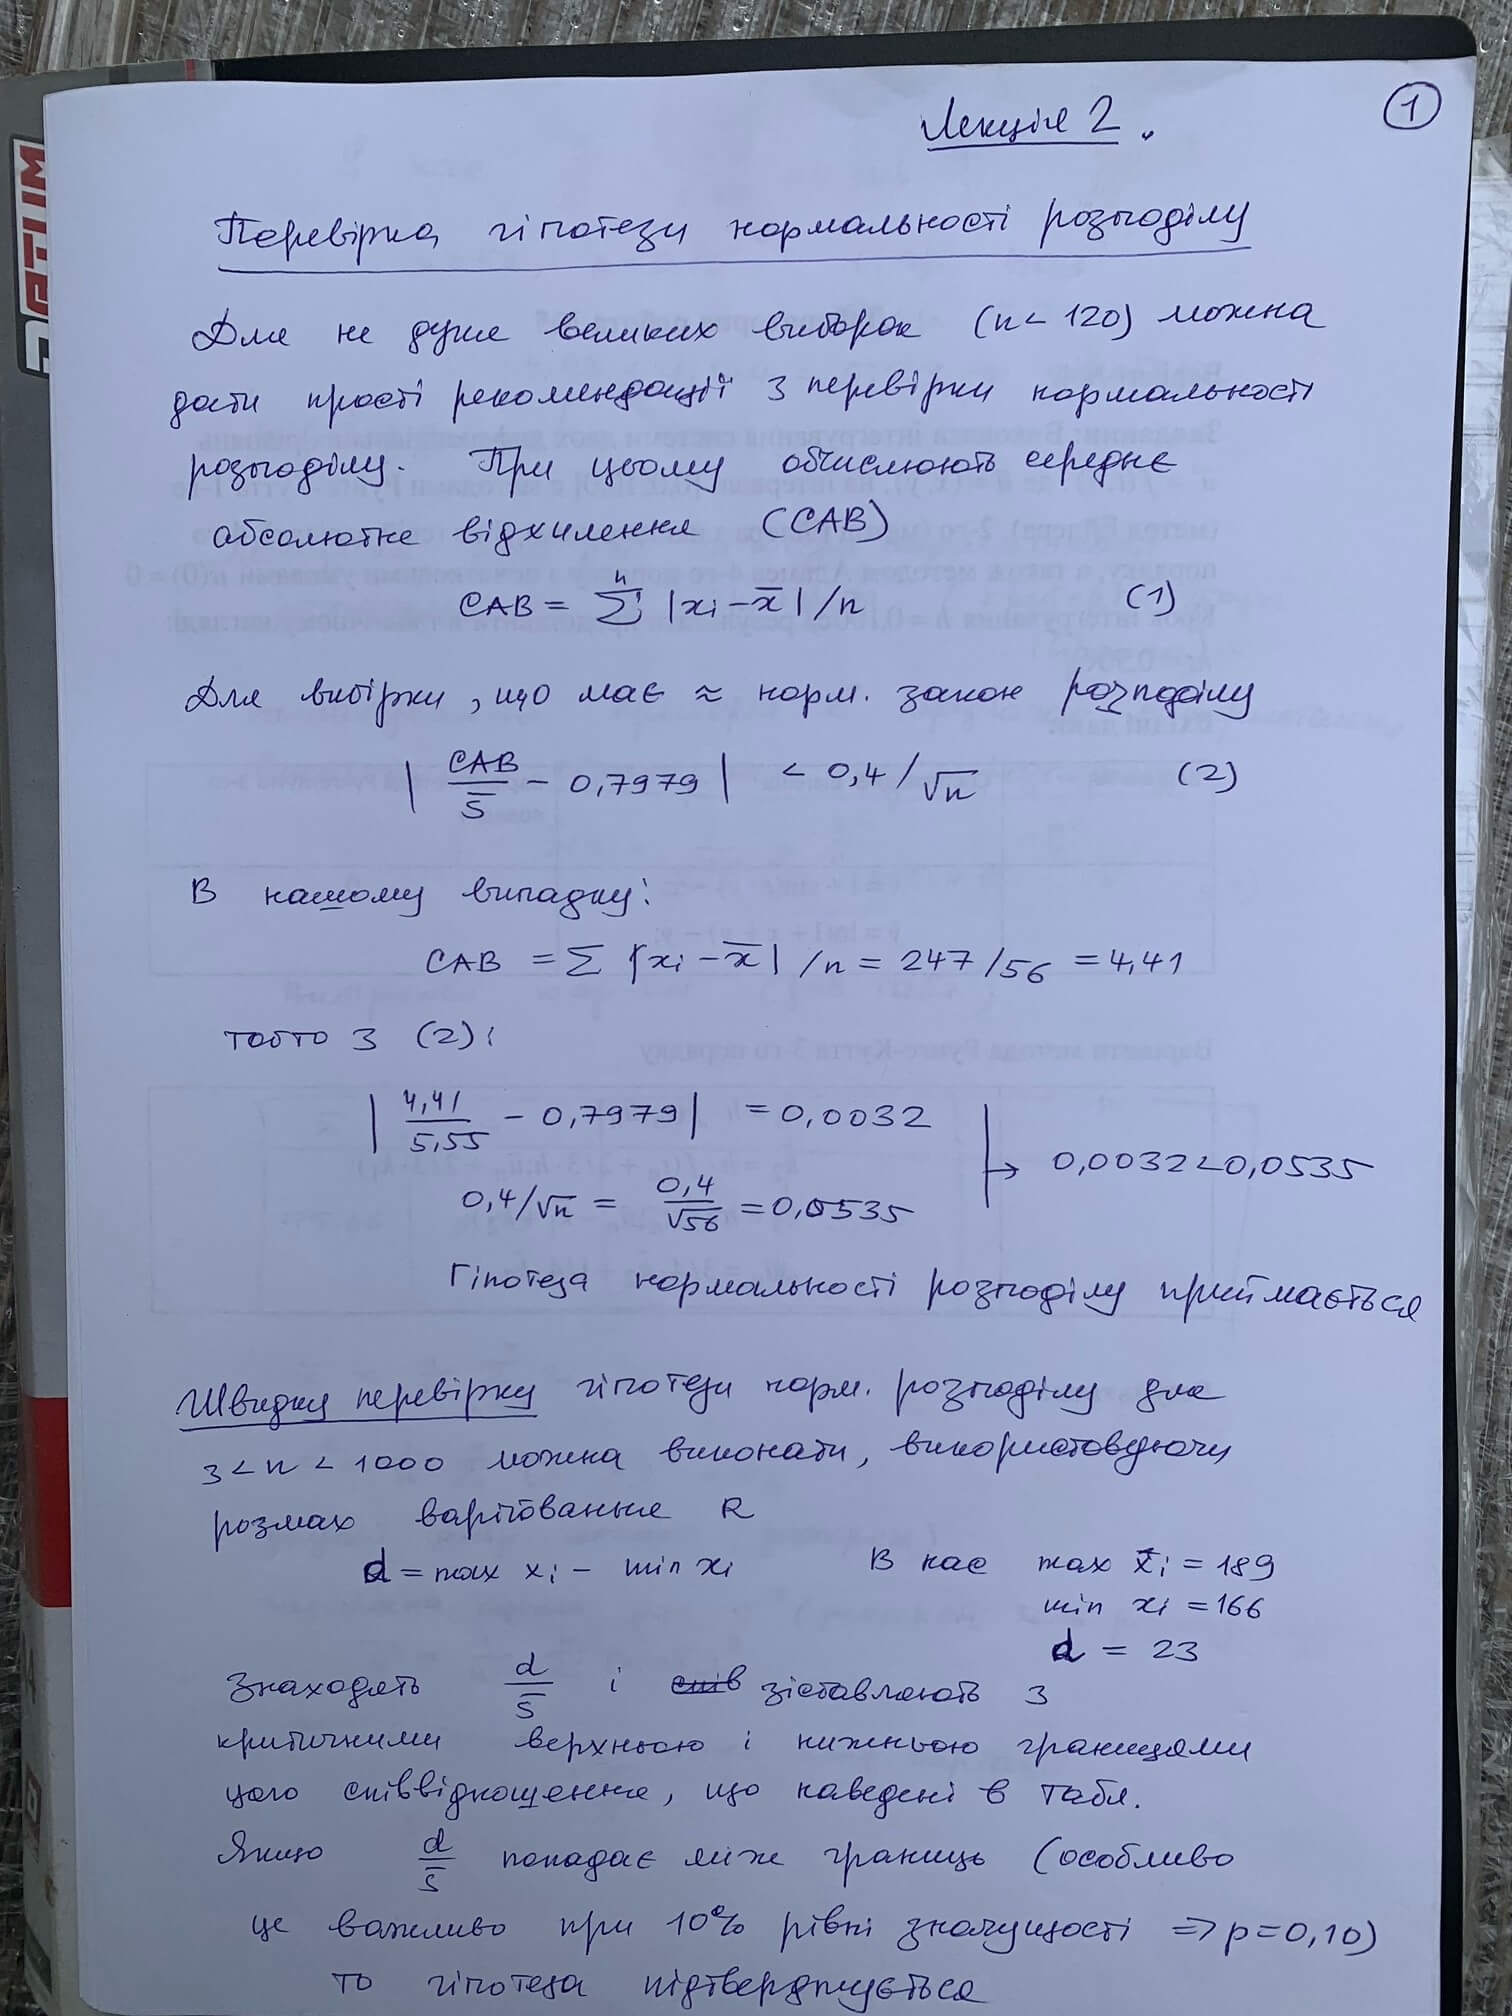 1
Лекція 2.
Перевірка гіпотези нормальності розподілу
Для не дуже великих вибірок (n < 120) можна
дати прості рекомендації з перевірки нормальності
розподілу. При цьому обчислюють середнє
абсолютне відхилення (САВ)
САВ = Σⁿ |xi − x̄| / n (1)
Для вибірки, що має ≈ норм. закон розподілу
| САВ/s̄ − 0,7979 | < 0,4 / √n (2)
В нашому випадку:
САВ = Σ |xi − x̄| / n = 247/56 = 4,41
тобто з (2):
| 4,41/5,55 − 0,7979 | = 0,0032
→ 0,0032 < 0,0535
0,4/√n = 0,4/√56 = 0,0535
Гіпотеза нормальності розподілу приймається
Швидку перевірку гіпотези норм. розподілу для
3 < n < 1000 можна виконати, використовуючи
розмах варіювання R
d = max xi − min xi В нас max xi = 189
min xi = 166
d = 23
Знаходять d/s̄ і зіставляють з
критичними верхньою і нижньою границями
цього співвідношення, що наведені в табл.
Якщо d/s̄ попадає між границь (особливо
це важливо при 10% рівні значущості => p=0,10)
то гіпотеза підтверджується